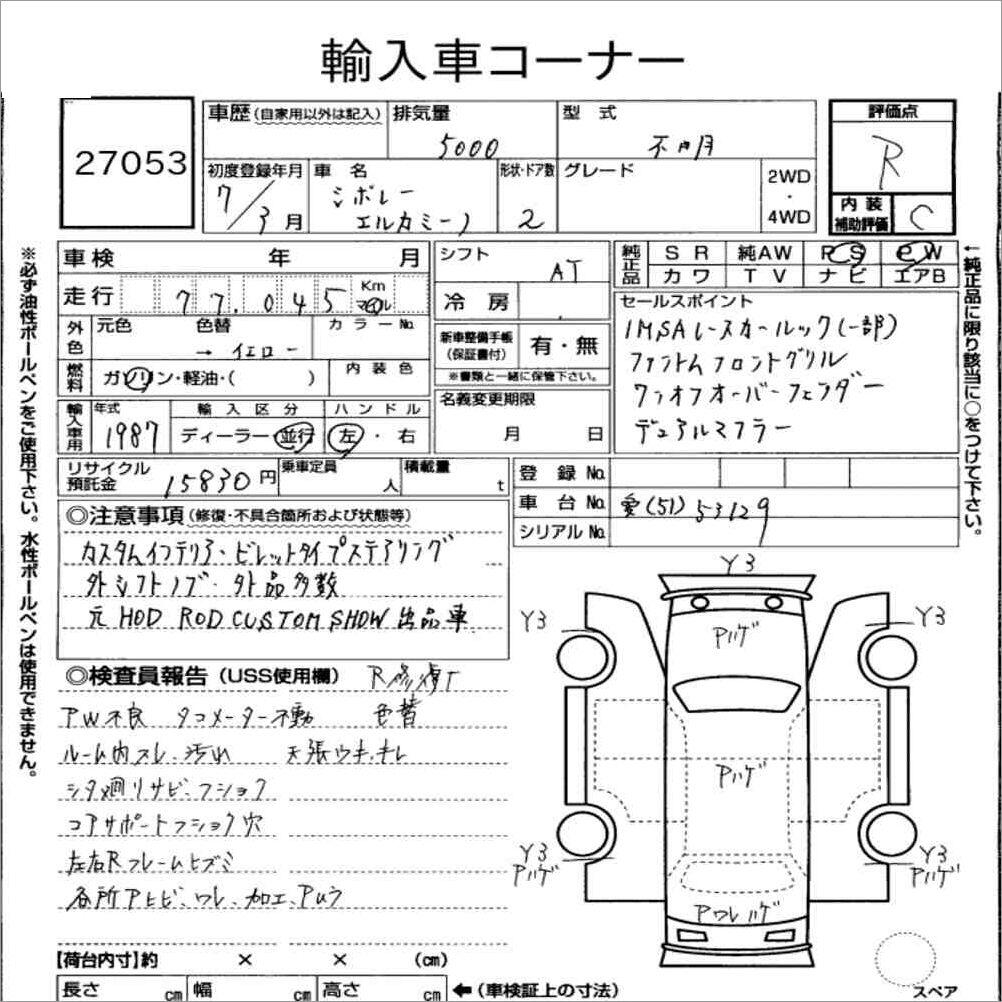 輸入車コーナー
27053
車歴 (自家用以外は記入) 排気量 5000 型式 不明
評価点 R
初度登録年月 7/3月 車名 シボレー エルカミーノ 形状・ドア数 2 グレード 2WD・4WD
内装補助評価 C
車検 年 月
走行 77,045 Km マイル
シフト AT
冷房
純正品 SR 純AW PS PW
カワ TV ナビ エアB
外色 元色 色替 → イエロー カラーNo.
燃料 ガソリン・軽油・( ) 内装色
新車整備手帳 (保証書付) 有・無
※書類と一緒に保管下さい。
セールスポイント
IMSAレースカールック(一部)
ファントムフロントグリル
ワンオフオーバーフェンダー
デュアルマフラー
輸入車用 年式 1987 輸入区分 ディーラー・並行 ハンドル 左・右
名義変更期限 月 日
リサイクル預託金 15830円 乗車定員 人 積載量 t
登録No.
車台No. 愛(51)53129
シリアルNo.
◎注意事項 (修復・不具合箇所および状態等)
カスタムインテリア・ビレットタイプステアリング
外シフトノブ・外品多数
元 HOD ROD CUSTOM SHOW 出品車
◎検査員報告 (USS使用欄) R修復
PW不良 タコメーター不動 色替
ルーム内スレ、汚れ 天張ウキ、キレ
シタ廻リサビ、フショク
コアサポートフショク穴
左右Rフレームヒズミ
各所Pヒビ、ワレ、加工、Pムラ
【荷台内寸】約 × × (cm)
長さ cm 幅 cm 高さ cm ←(車検証上の寸法)
Y3
Y3
Y3
Pハゲ
Pハゲ
Y3
Pハゲ
Y3
Pハゲ
Pワレハゲ
スペア
※必ず油性ボールペンをご使用下さい。水性ボールペンは使用できません。
←純正品に限り該当に○をつけて下さい。